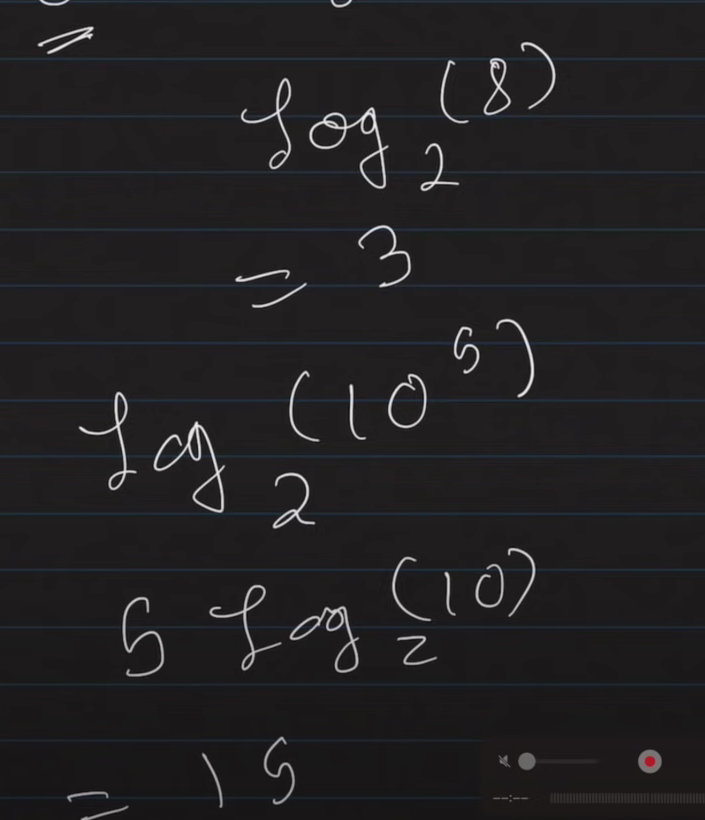 =
log₂(8)
= 3
log₂(10⁵)
5 log₂(10)
= 15
--:--